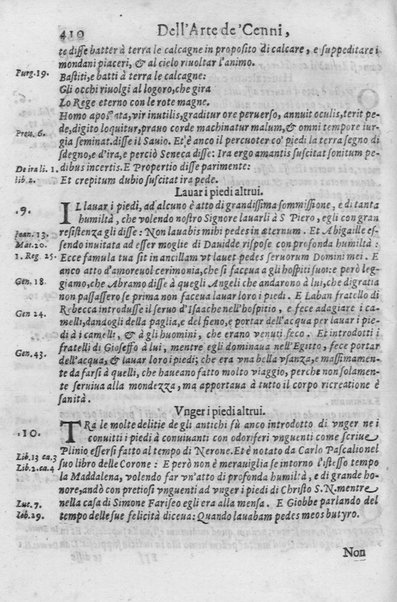 410 Dell'Arte de' Cenni,
te disse batter à terra le calcagne in proposito di calcare, e suppeditare i
mondani piaceri, & al cielo riuoltar l'animo.
Purg. 19. Bastiti, e batti à terra le calcagne:
Gli occhi riuolgi al logoro, che gira
Lo Rege eterno con le rote magne.
Homo apostata, vir inutilis, graditur ore peruerso, annuit oculis, terit pe-
Prou. 6. de, digito loquitur, prauo corde machinatur malum, & omni tempore iur-
gia seminat. disse il Sauio. Et è anco il percuoter co' piedi la terra segno di
sdegno, e d'ira, e perciò Seneca disse: Ira ergo amantis suscitat sonitum pe-
De ira li. 1. dibus incertis. E Propertio disse parimente:
lib. 2. Et crepitum dubio suscitat ira pede.
Lauar i piedi altrui.
.9. IL lauar i piedi, ad alcuno è atto di grandissima sommissione, e di tanta
humiltà, che volendo nostro Signore lauarli à S. Piero, egli con gran
Joan. 13. resistenza gli disse: Non lauabis mihi pedes in æternum. Et Abigaille es-
Mar. 20. sendo inuitata ad esser moglie di Dauidde rispose con profonda humiltà:
1. Reg. 25. Ecce famula tua sit in ancillam vt lauet pedes seruorum Domini mei. E
anco atto d'amoreuol cerimonia, che si faceua a gli hospiti suoi: e però leg-
Gen. 18. giamo, che Abramo disse à quegli Angeli che andarono à lui, che di gratia
non passassero se prima non faceua lauar loro i piedi. E Laban fratello di
Gen 24. Rebecca introdusse il seruo d'Isaac he nell'hospitio, e fece adagiare i ca-
melli, dandogli della paglia, e del fieno, e portar dell'acqua per lauar i pie-
di à i camelli, & à gli huomini, che erano venuti seco. Et introdotti i
Gen. 43. fratelli di Gioseffo à lui, mentre egli dominaua nell'Egitto, fece portar
dell'acqua, & lauar loro i piedi; che era vna bella vsanza, e massimamen-
te da farsi à quelli, che haueano fatto molto viaggio, perche non solamente
seruiua alla mondezza, ma apportaua à tutto il corpo ricreatione è
sanità.
Vnger i piedi altrui.
.10. TRa le molte delitie de gli antichi sù anco introdotto di vnger ne i
conuitti i piedi à conuiuanti con odoriferi vnguenti come scriue
Lib. 13 ca. 3 Plinio essersi fatto al tempo di Nerone. Et è notato da Carlo Pascalio nel
Lib. 2. ca. 4 suo libro delle Corone: E però non è merauiglia se intorno l'istesso tempo
la Maddalena, volendo far vn'atto di profonda humiltà, e di grande ho-
nore, andò con pretiosi vnguenti ad vnger i piedi di Christo S. N. mentre
Luc. 7. nella casa di Simone Fariseo egli era alla mensa. E Giobbe parlando del
Lib. 29. tempo delle sue felicità diceua: Quando lauabam pedes meos butyro.
Non